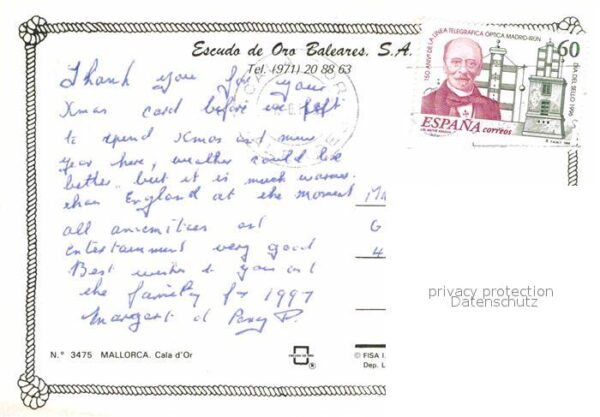 Escudo de Oro Baleares. S.A.
Tel. (971) 20 88 63
Thank you for your
Xmas card before we left
to spend Xmas and new
year here, weather could be
better but it is much warmer
than England at the moment
all amenities and
entertainment very good
Best wishes to you and
the family for 1997
Margaret d Percy P.
Ma
G
4
N.° 3475 MALLORCA. Cala d'Or
ESCUDO DE ORO
© FISA I.
Dep. L
150 ANIV DE LA LINEA TELEGRAFICA OPTICA MADRID-IRUN
60
DIA DEL SELLO 1996
ESPAÑA correos
privacy protection
Datenschutz